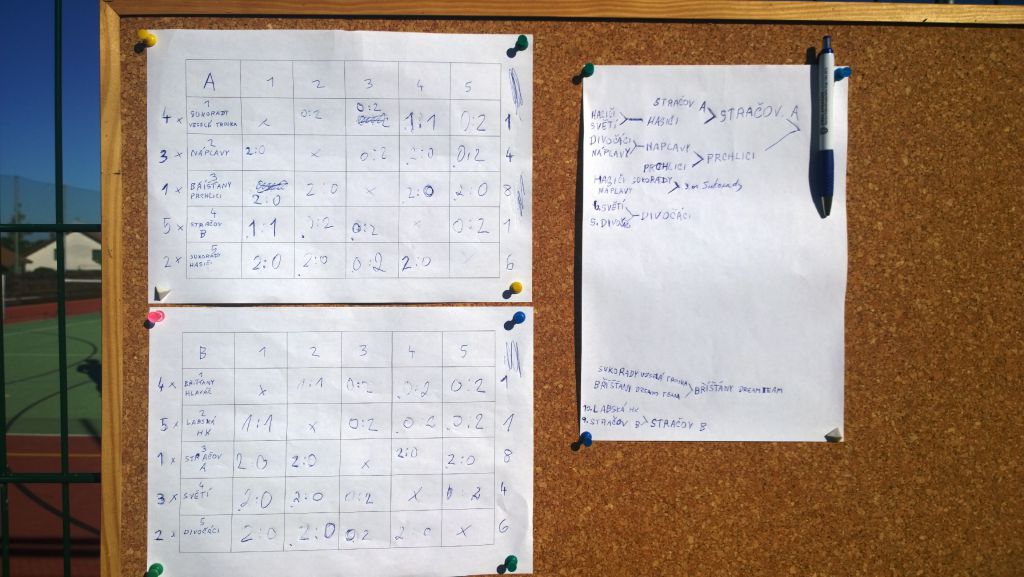 A 1 2 3 4 5
4 x 1 SUKORADY VESELÁ TROJKA x 0:2 0:2 1:1 0:2 1
3 x 2 NÁPLAVY 2:0 x 0:2 2:0 0:2 4
1 x 3 BŘÍŠŤANY PRCHLICI 2:0 2:0 x 2:0 2:0 8
5 x 4 STRAČOV B 1:1 0:2 0:2 x 0:2 1
2 x 5 SUKORADY HASIČI 2:0 2:0 0:2 2:0 x 6
B 1 2 3 4 5
4 x 1 BŘÍŠŤANY x 1:1 0:2 0:2 0:2 1
5 x 2 LABSKÁ HK 1:1 x 0:2 0:2 0:2 1
1 x 3 STRAČOV A 2:0 2:0 x 2:0 2:0 8
3 x 4 SVĚTÍ 2:0 2:0 0:2 x 0:2 4
2 x 5 DIVOČÁCI 2:0 2:0 0:2 2:0 x 6
STRAČOV A
HASIČI
SVĚTÍ HASIČI STRAČOV A
DIVOČÁCI
NÁPLAVY NAPLAVY
PRCHLICI PRCHLICI
HASIČI SUKORADY
NÁPLAVY 3.m Sukorady
6. SVĚTÍ
5. DIVOČ DIVOČÁCI
SUKORADY VESELÁ TROJKA
BŘÍŠŤANY DREAM TEAM BŘÍŠŤANY DREAM TEAM
10. LABSKÁ HK
9. STRAČOV B STRAČOV B